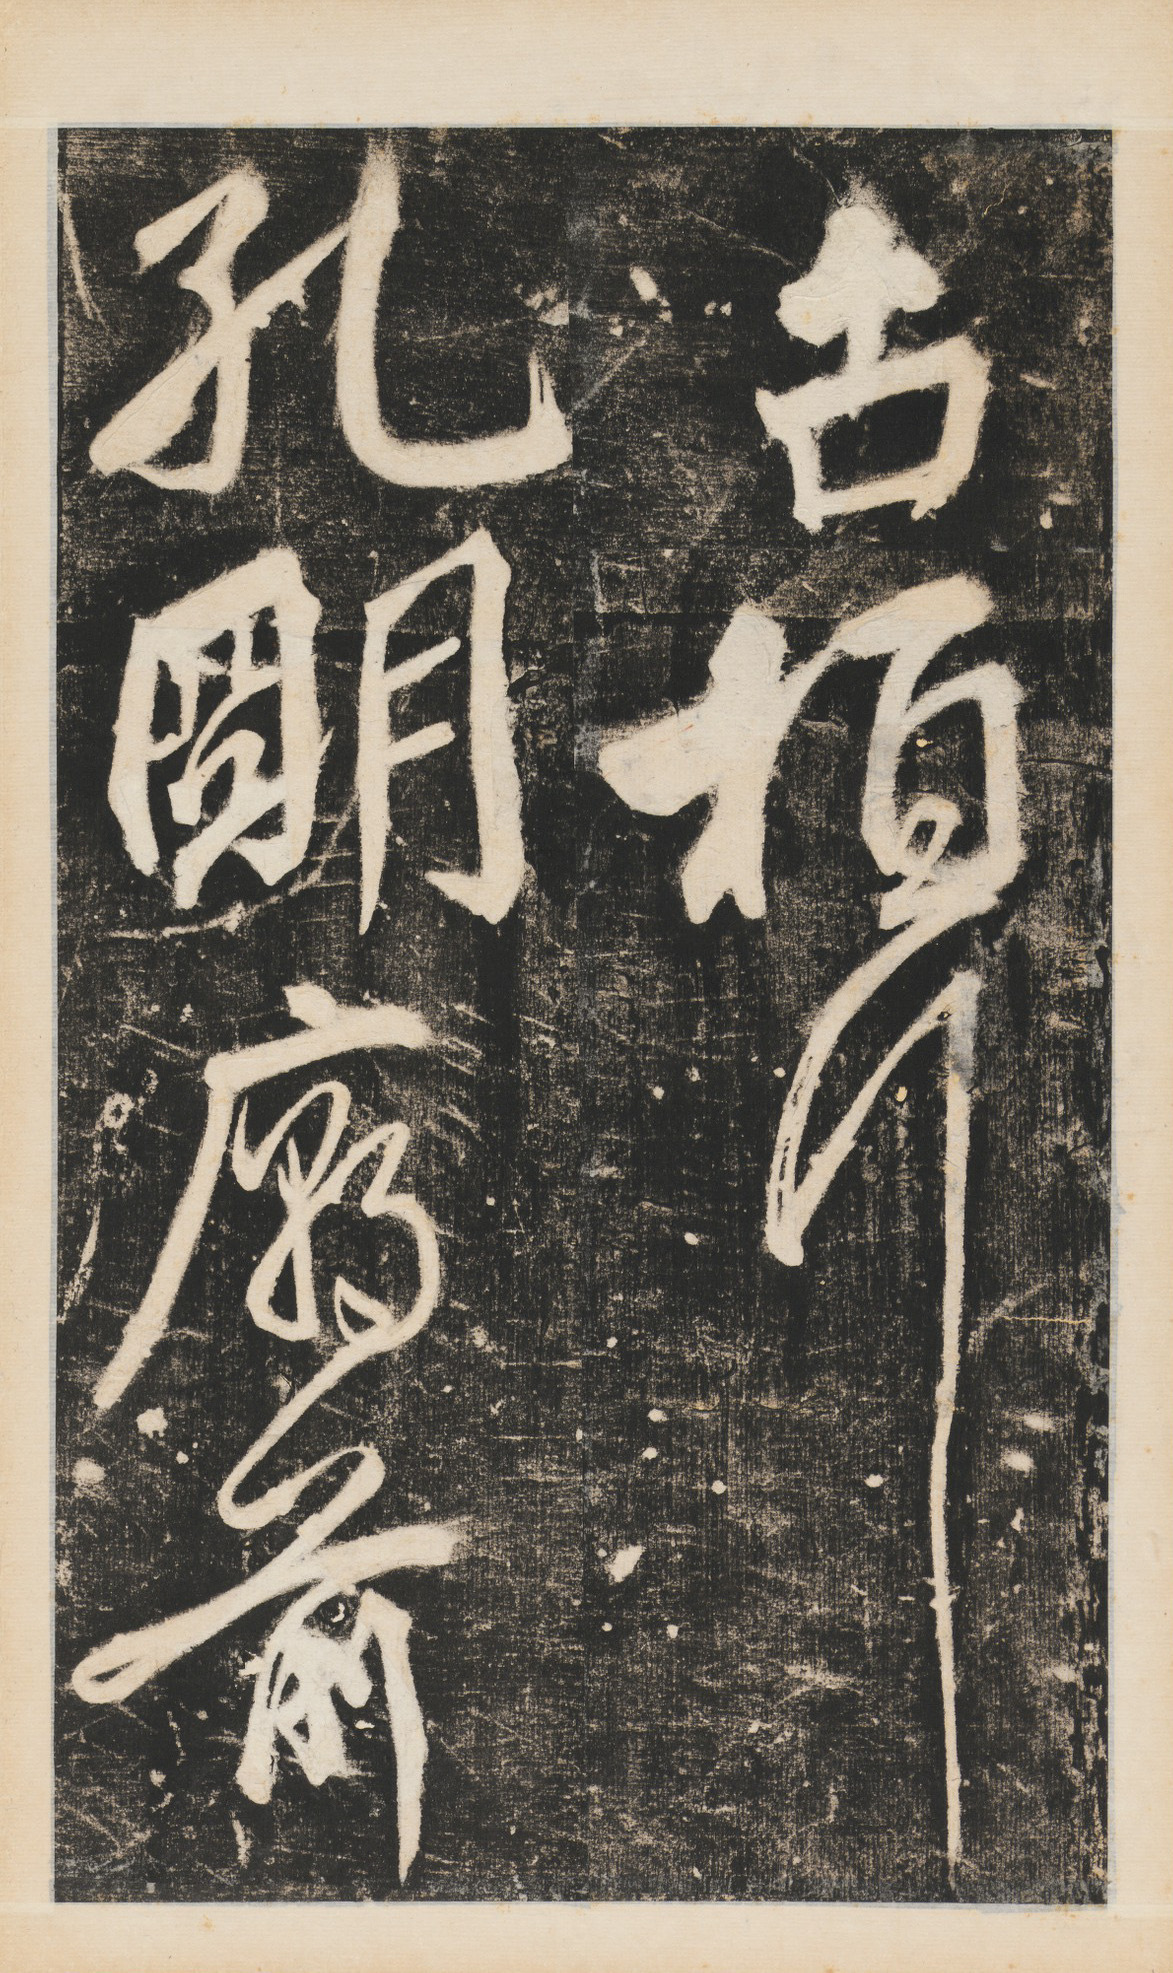 古柏行
孔明廟前